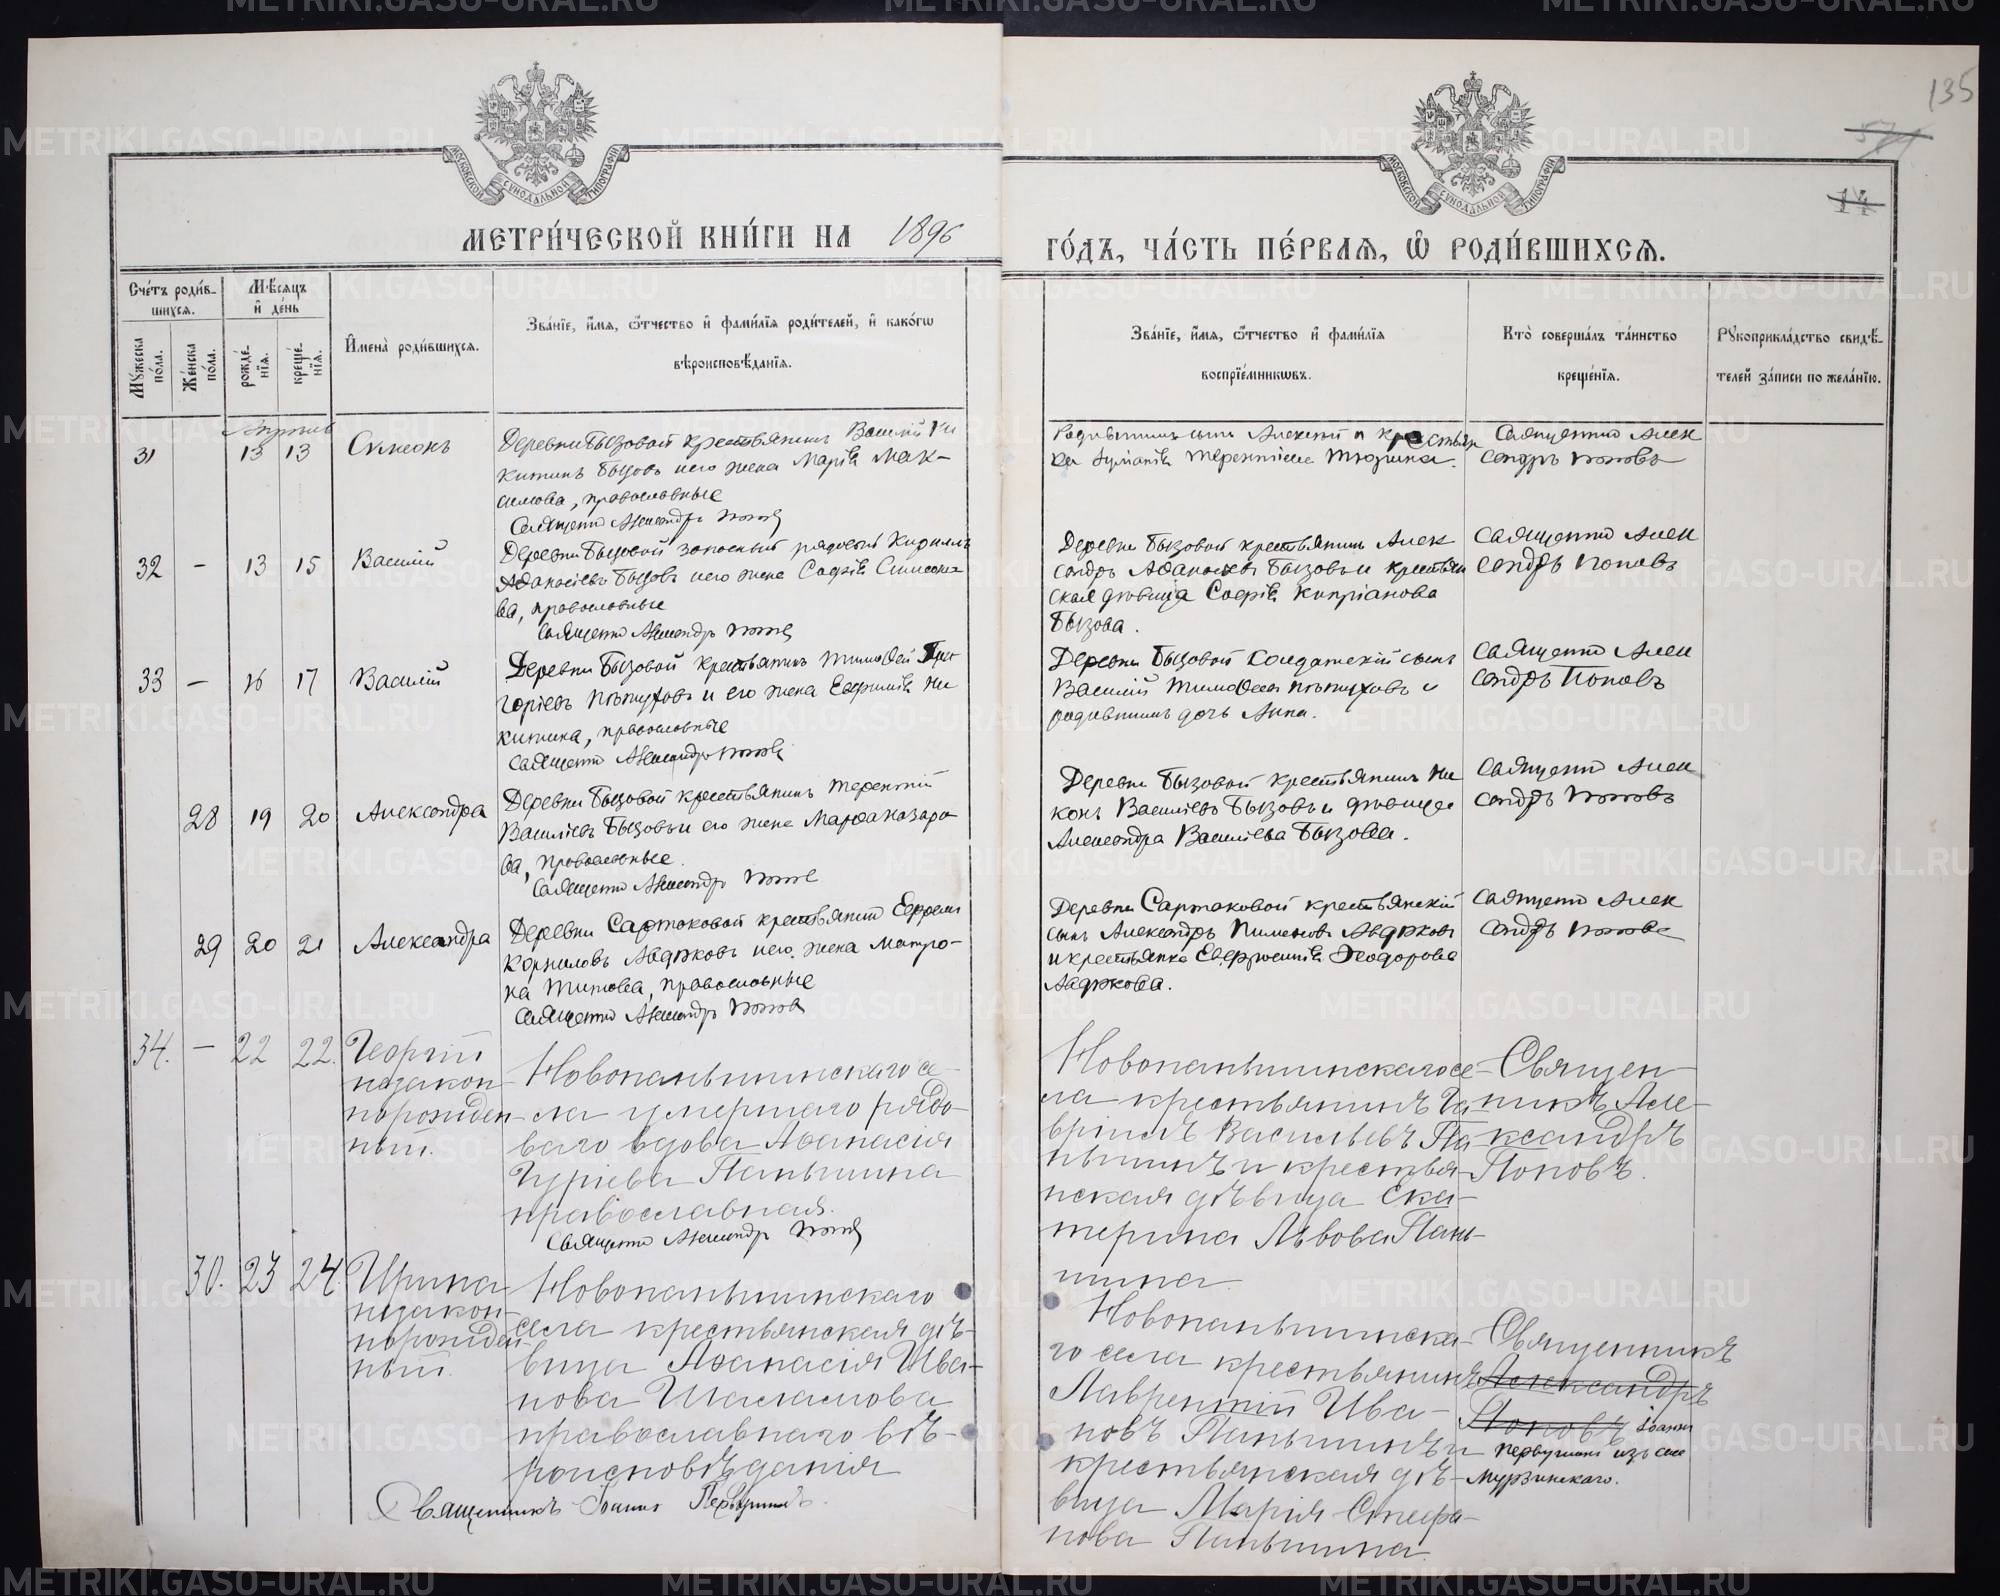 135
МОСКОВСКОЙ СѴНОДАЛЬНОЙ ТИПОГРАФІИ
МОСКОВСКОЙ СѴНОДАЛЬНОЙ ТИПОГРАФІИ
МЕТРИ́ЧЕСКОЙ КНИ́ГИ НА 1896
ГО́ДЪ, ЧА́СТЬ ПЕ́РВАЯ, Ѽ РОДИ́ВШИХСЯ.
Сче́тъ роди́в-
шихся.
Мꙋжеска по́ла.
Же́нска по́ла.
Мѣ́сяцъ и҆ де́нь
рожде́-
нїя.
креще́-
нїя.
И҆мена̀ роди́вшихся.
Зва́нїе, и҆́мя, ѻ҆́тчество и҆ фами́лїя роди́телей, и҆ како́гѡ
вѣроисповѣ́данїя.
Зва́нїе, и҆́мя, ѻ҆́тчество и҆ фами́лїя
воспрїе́мникѡвъ.
Кто̀ соверша́лъ та́инство
креще́нїя.
Рꙋкоприкла́дство свидѣ́-
телей за́писи по жела́нїю.
Апрель
31 13 13 Сѵмеонъ
Деревни Бызовой крестьянинъ Василій Ни
китинъ Бызовъ и его жена Марія Мак-
симова, православные
Священно Александръ Поповъ
Родившихъ сынъ Алексій и крестьян
Терентіева
Священно Алек
сандръ Поповъ
32 - 13 15 Василій
Деревни Бызовой запасный рядовой Кириллъ
Аѳанасіевъ Бызовъ и его жена Софія Симеоно
ва, православные
Священно Александръ Поповъ
Деревни Бызовой крестьянинъ Алек
сандръ Аѳанасьевъ Бызовъ и крестьян
ская дѣвица Софія Кипріанова
Бызова.
Священно Алек
сандръ Поповъ
33 - 16 17 Василій
Деревни Бызовой крестьянинъ Тимоѳей Гри
горіевъ Пѣтуховъ и его жена Евфимія Ни
китина, православные
Священно Александръ Поповъ
Деревни Бызовой солдатскій сынъ
Василій Тимоѳеевъ Пѣтуховъ и
родившихъ дочь Анна.
Священно Алек
сандръ Поповъ
28 19 20 Александра
Деревни Бызовой крестьянинъ Терентій
Василіевъ Бызовъ и его жена Марѳа Назаро
ва, православные.
Священно Александръ Поповъ
Деревни Бызовой крестьянинъ Ни
конъ Василіевъ Бызовъ и дѣвица
Александра Василіева Бызова.
Священно Алек
сандръ Поповъ
29 20 21 Александра
Деревни Сартаковой крестьянинъ Ефремъ
Корниловъ Авдюковъ и его жена Матро-
на Титова, православные
Священно Александръ Поповъ
Деревни Сартаковой крестьянскій
сынъ Александръ Пименовъ Авдюковъ
и крестьянка Евфросинія Ѳеодорова
Авдюкова.
Священно Алек
сандръ Поповъ
34. - 22 22. Георгій
незакон-
норожден-
ный.
Новопаньшинскаго се-
ла умершаго рядо-
ваго вдова Аѳанасія
Гуріева Паньшина
православная.
Священно Александръ Поповъ
Новопаньшинскаго се-
ла крестьянинъ Га-
вріилъ Васильевъ Па-
ньшинъ и крестья-
нская дѣвица Ека-
терина Львова Пань-
шина.
Священ-
никъ Але-
ксандръ
Поповъ.
30. 23 24. Ирина
незакон-
норожден-
ный.
Новопаньшинскаго
села крестьянская дѣ-
вица Аѳанасія Ива-
нова Шаламова
православнаго вѣ-
роисповѣданія
Священникъ Іоаннъ Первушинъ.
Новопаньшинска-
го села крестьянинъ
Лаврентій Ива-
новъ Паньшинъ и
крестьянская дѣ-
вица Марія Стефа-
нова Паньшина.
Священникъ
Александръ
Поповъ Іоаннъ
Первушинъ изъ села
Мурзинскаго.
METRIKI.GASO-URAL.RU